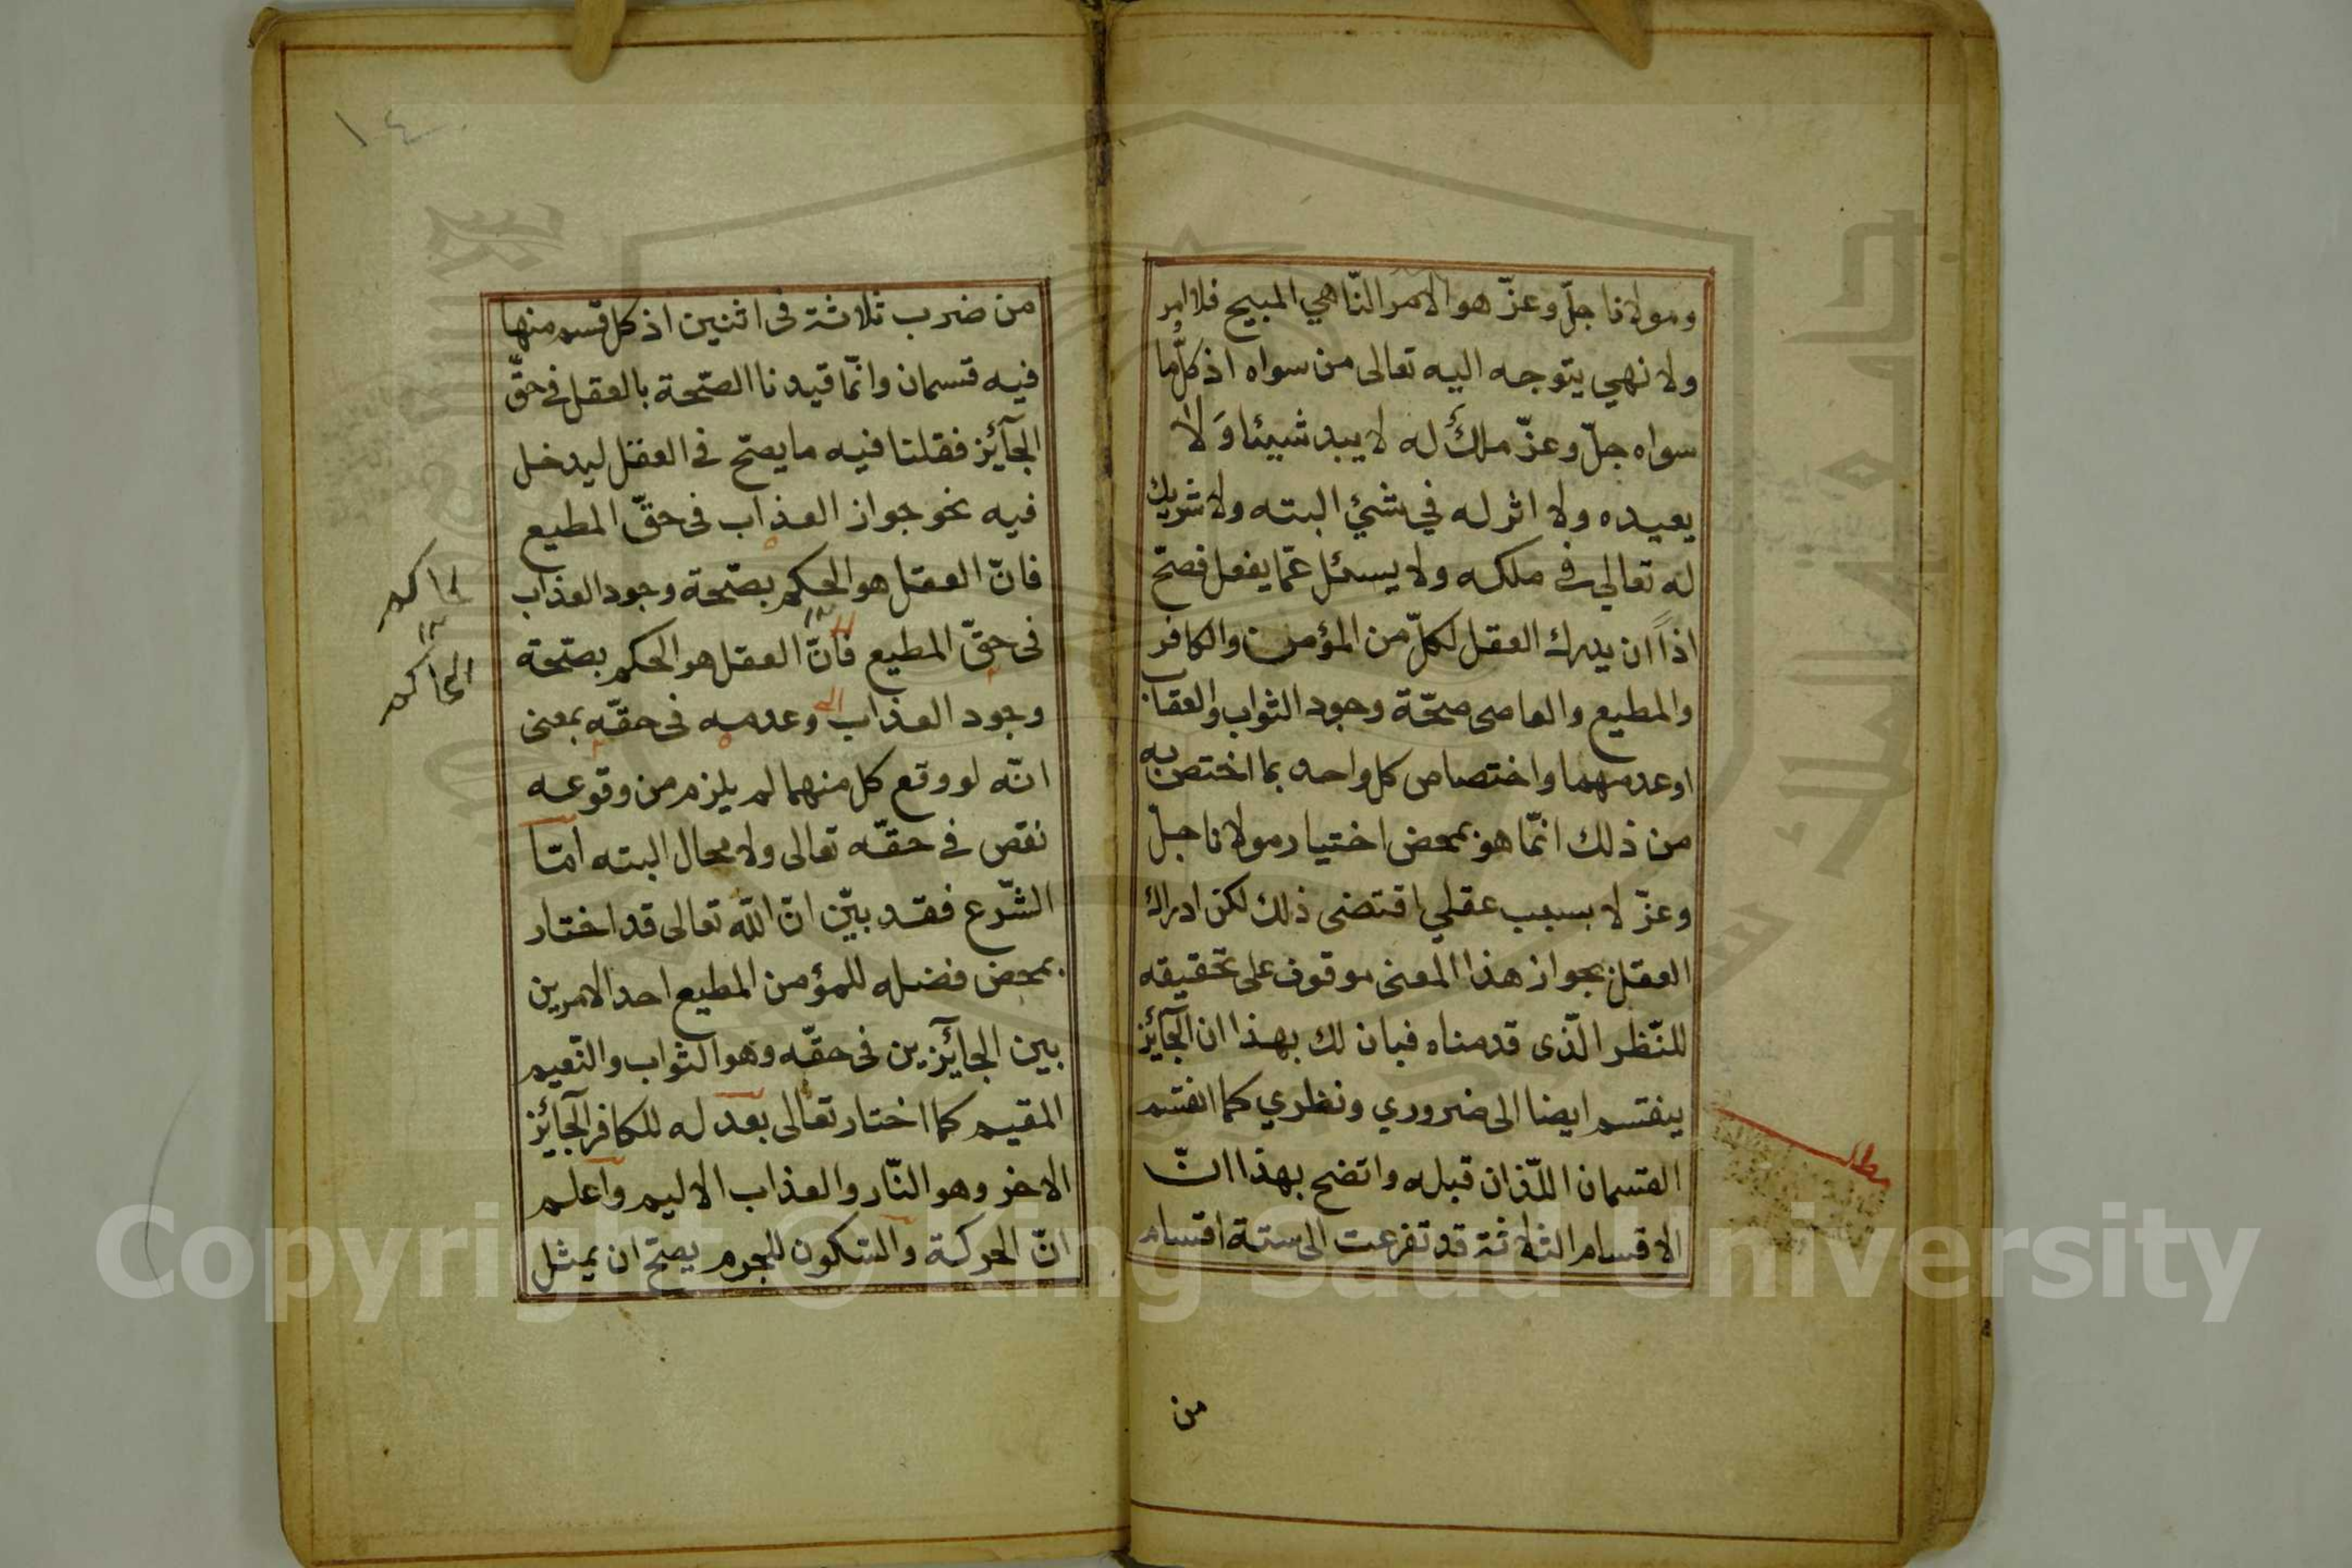 ومولانا جلّ وعزّ هو الامر النّاهي المبيح فلا امر
ولا نهي يتوجه اليه تعالى من سواه اذ كلّ ما
سواه جلّ وعزّ ملكٌ له لا يبد شيئا وَلا
يعيده ولا اثر له في شئ البته ولا شريك
له تعالي في ملكه ولا يسئل عمّا يفعل فصحّ
اذاً ان يدرك العقل لكلّ من المؤمن والكافر
والمطيع والعاصى صحّة وجود الثواب والعقاب
او عدمهما واختصاص كل واحد بما اختص به
من ذلك انّما هو بمحض اختيار مولانا جلّ
وعزّ لا بسبب عقلي اقتضى ذلك لكن ادراك
العقل بجواز هذا المعنى موقوف على تحقيقه
للنّظر الّذى قدمناه فبان لك بهذا ان الجآئز
ينقسم ايضا الى ضروري ونظري كما انقسم
القسمان اللّذان قبله واتضح بهذا انّ
الاقسام الثلاثة قد تفرعت الى ستة اقسام
مطلب
من
١٤
من ضرب ثلاثة فى اثنين اذ كل قسم منها
فيه قسمان وانّما قيدنا الصّحة بالعقل فى حقّ
الجآئز فقلنا فيه ما يصحّ فى العقل ليدخل
فيه نحو جواز العذاب فى حقّ المطيع
فانّ العقل هو الحكم بصّحة وجود العذاب
فى حقّ المطيع فانّ العقل هو الحكم بصّحة
وجود العذاب وعدمه فى حقّه بمعنى
انّه لو وقع كل منهما لم يلزم من وقوعه
نقص فى حقّه تعالى ولا محال البته امّا
الشّرع فقد بيّن انّ الله تعالى قد اختار
بمحض فضله للمؤمن المطيع احد الامرين
بين الجآئزين فى حقّه وهو الثواب والنّعيم
المقيم كما اختار تعالى بعدله للكافر الجآئز
الاخر وهو النّار والعذاب الاليم واعلم
انّ الحركة والسّكون للجرم يصحّ ان يمثل
الحاكم
Copyright © King Saud University